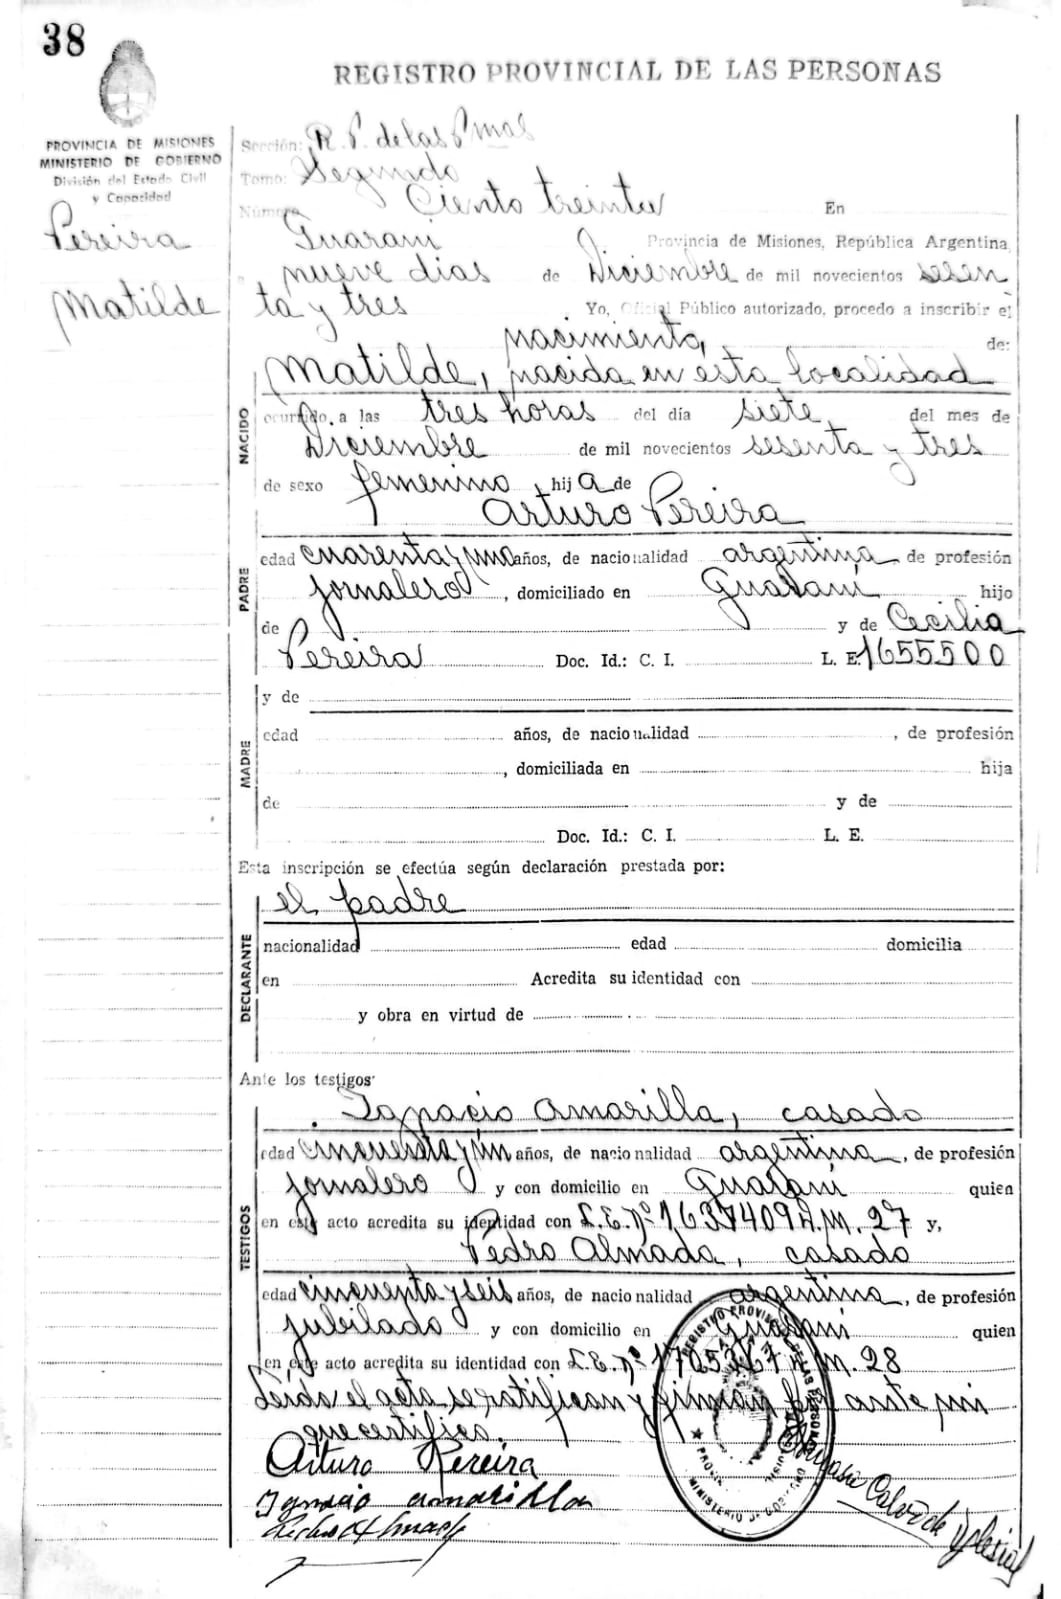 38
REGISTRO PROVINCIAL DE LAS PERSONAS
PROVINCIA DE MISIONES
MINISTERIO DE GOBIERNO
División del Estado Civil
y Capacidad
Pereira
Matilde
Sección: R. P. de las Pmas
Tomo: Segundo
Número Ciento treinta En
Guaraní Provincia de Misiones, República Argentina,
a nueve dias de Diciembre de mil novecientos sesen
ta y tres Yo, Oficial Público autorizado, procedo a inscribir el
nacimiento, de:
NACIDO
Matilde, nacida en esta localidad
ocurrido, a las tres horas del día siete, del mes de
Diciembre de mil novecientos sesenta y tres
de sexo femenino, hija de
Arturo Pereira
PADRE
edad cuarenta y un años, de nacionalidad argentina de profesión
jornalero, domiciliado en Guaraní hijo
de y de Cecilia
Pereira Doc. Id.: C. I. L. E. 1655500
MADRE
y de
edad años, de nacionalidad , de profesión
, domiciliada en hija
de y de
Doc. Id.: C. I. L. E.
Esta inscripción se efectúa según declaración prestada por:
DECLARANTE
el padre
nacionalidad edad domicilia
en Acredita su identidad con
y obra en virtud de
Ante los testigos
TESTIGOS
Ignacio Amarilla, casado
edad cincuenta y un años, de nacionalidad argentina, de profesión
jornalero y con domicilio en Guaraní quien
en este acto acredita su identidad con L.E. Nº 1637409 D.M. 27 y,
Pedro Almada, casado
edad cincuenta y seis años, de nacionalidad argentina, de profesión
jubilado y con domicilio en Guaraní quien
en este acto acredita su identidad con L.E. nº D.M. 28
Leída el acta se ratifican y firman por ante mi
que certifico.
Arturo Pereira
Ignacio amarilla
REGISTRO PROVINCIAL DE LAS PERSONAS
MINISTERIO DE GOBIERNO
Calvo de Yglesias